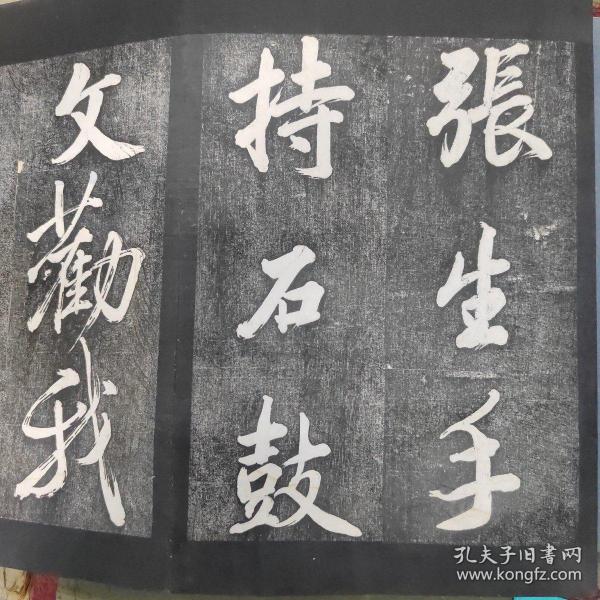 張生手
持石鼓
文勸我
孔夫子旧書网
www.kongfz.com